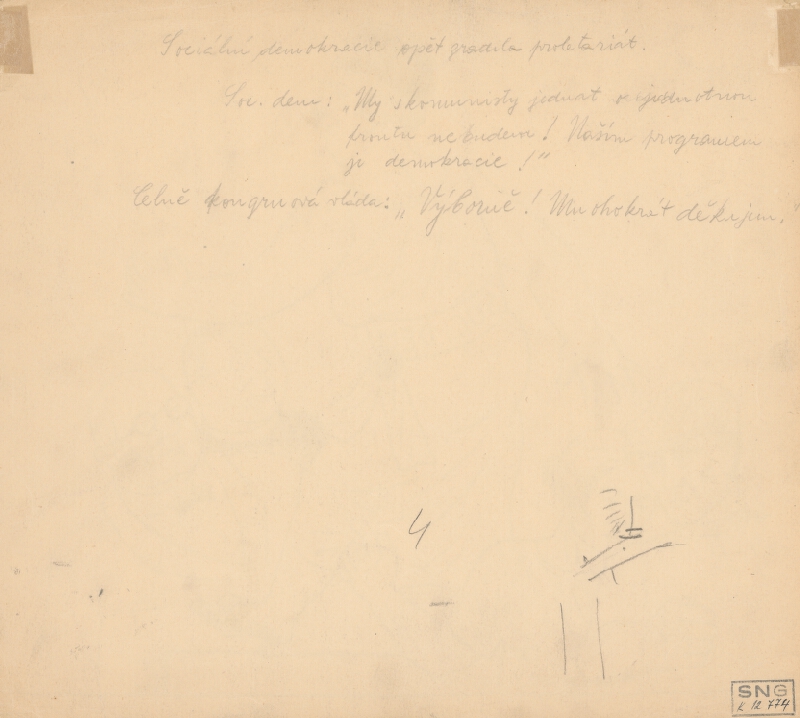 Sociální demokracie opět zradila proletariát.
Soc. dem: „My s komunisty jednat o jednotnou
frontu nebudem! Naším programem
je demokracie!“
Celně kongruová vláda: „Výborně! Mnohokrát děkujem.“
4
SNG
K 12 774